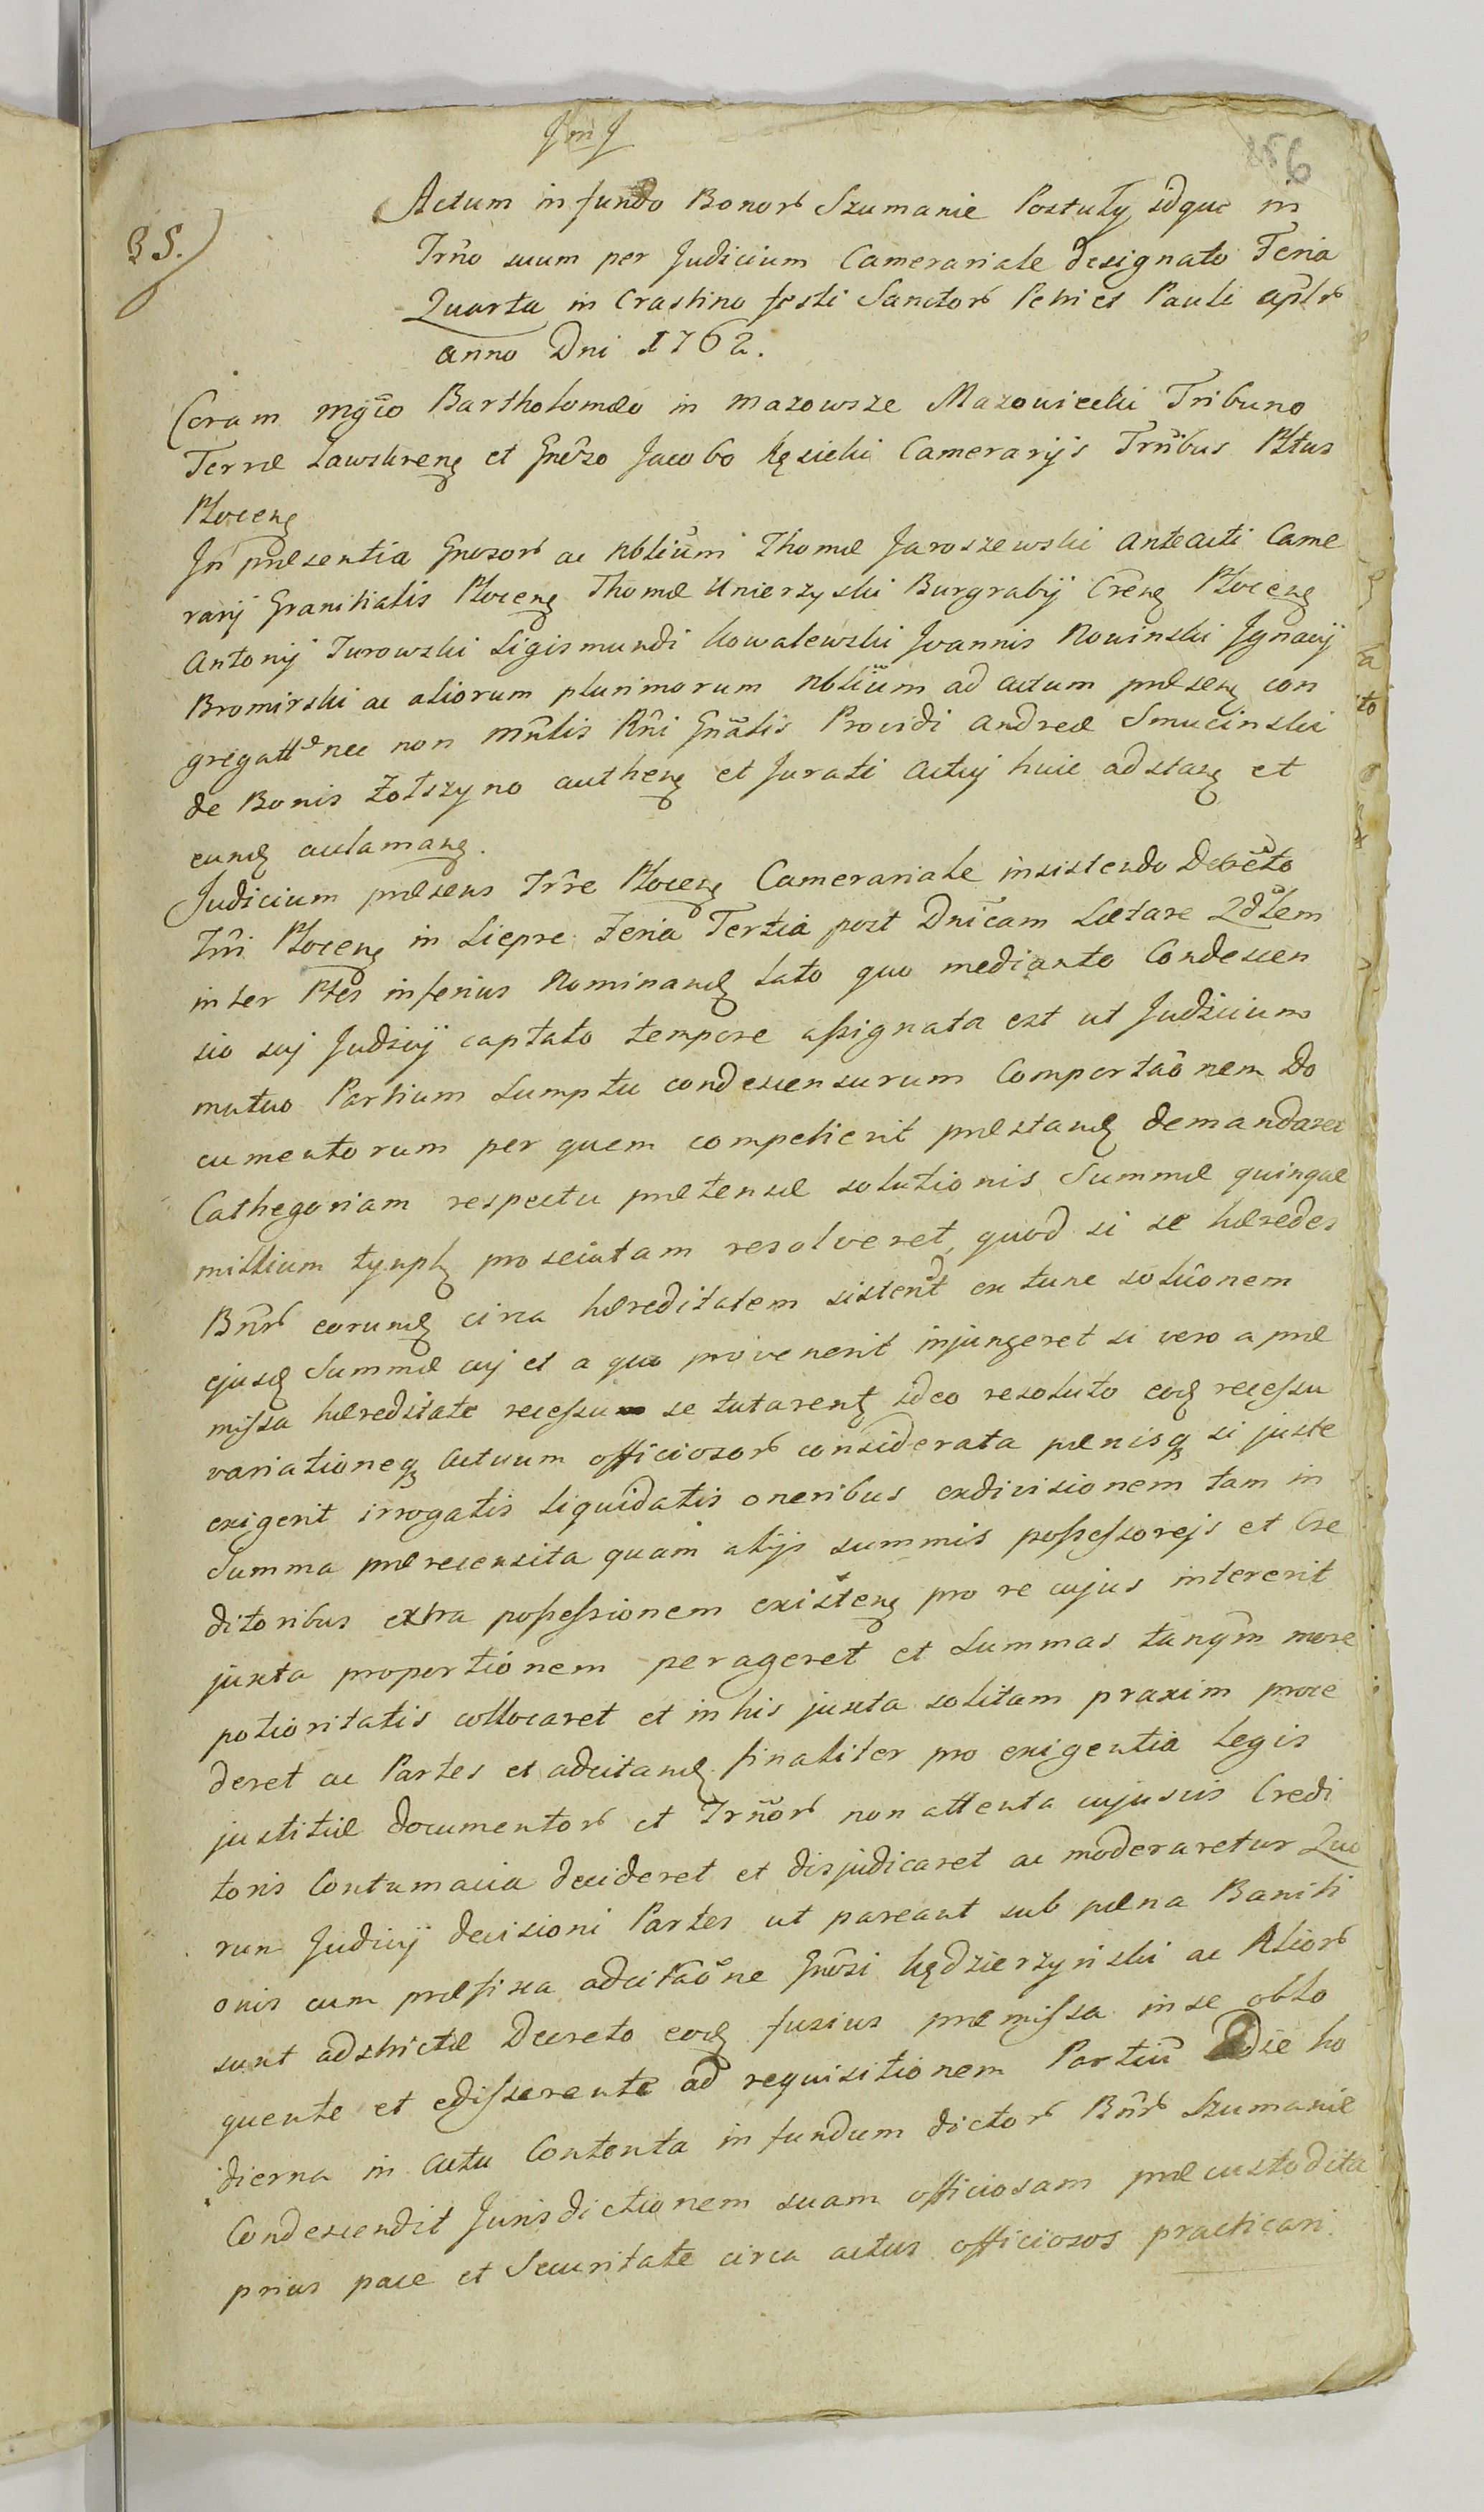 JmJ
856
35.)
Actum in fundo Bonor Szumanie Postuly idque in
Trno suum per Judicium Camerariale designato Feria
Quarta in Crastino festi Sanctor Petri et Pauli aplr
anno Dni 1762.
Coram mgco Bartholomæo in mazowsze Mazowiecki Tribuno
Terræ Zawskren et Gnrso Jacobo Kęsicki Camerarijs Trribus Pltus
Plocen
In præsentia Gnrosor ac nblium Thomæ Jaroszewski anteacti Came
rarij Granitialis Plocen Thomæ Unierzyski Burgrabij Cren Plocen
Antonij Turowski Sigismundi Kowalewski Joannis Nowinski Ignacij
Bromirski ac aliorum plurimorum nblium ad actum præsen con
gregatt nec non mnlis Rni Gnalis Providi Andreæ Smucinski
de Bonis Zolszyno authen et Jurati actuj huic adstan et
eund aclaman.
Judicium præsens Trre Plocen Camerariale insistendo Decreto
Trri Plocen in Sieprc feria Tertia post Dnicam Lætare Qdlem
inter Ptes inferius Nominand lato quo mediante Condescen
sio suj Judicij captato tempore assignata est ut Judicium
mutuo Partium Sumptu condescensurum Comportaonem Do
cumentorum per quem competierit præstand demandaret
Cathegoriam respectu prætensæ solutionis Summæ quinque
millium tymph proseintam resolveret, quod si se hæredes
Bnr eorund circa hæreditatem sisterent ex tunc soluonem
ejusd Summæ cuj et a quo provenerit injungeret si vero a præ
missa hæreditate recessu se tutarent ideo resoluto eod recessu
variationeq actuum officiosor considerata pænisq si juste
exigerit irrogatis liquidatis oneribus exdivisionem tam in
Summa præ recensita quam alijs summis possessorejs et Cre
ditoribus extra possessionem existen pro re cujus intererit
juxta proportionem perageret et Summas tanqm more
potioritatis collocaret et in his juxta solitam praxim proce
deret ac Partes et adcitand finaliter pro exigentia legis
justitiæ documentor et Trror non attenta cujusvis Credi
toris Contumacia decideret et disjudicaret ac moderaretur Quo
rum Judicij decisioni Partes ut pareant sub pæna Baniti
onis cum præfixa adcitaone Gnrosi Kędzierzynski ac Alior
sunt adstrictæ Decreto eod fusius præmissa in se oblo
quente et edisserente ad requisitionem Partiu die ho
dierna in actu Contenta in fundum dictor Bnr Szumanie
Condescendit Jurisdictionem suam officiosam præcustodita
prius pace et Securitate circa actus officiosos practicari